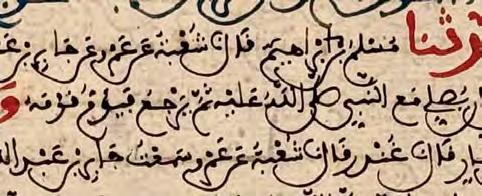 دثنا مسلم بن ابراهيم قال شعبة عن عمرو عن جابر بن ع
يصلي مع النبي صلى الله عليه ثم يرجع فيؤم قومه و
قال غندر قال شعبة عن عمرو سمعت جابر بن عبد الله